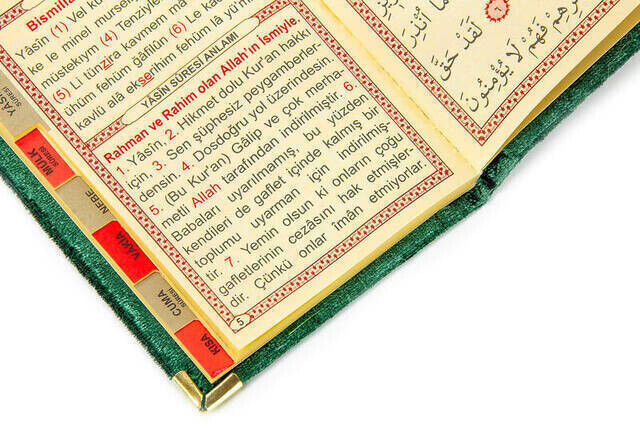 Bismilla
Yâsîn (1) Vel ku
ke le minel mursel
müstekıym (4) tenziyle
(5) Li tünzira kavmem mâ
ühüm fehüm ğâfilûn (6) Le ka
kavlü alâ ekserihim fehüm lâ yü'm
YÂSÎN SÛRESİ ANLAMI
Rahman ve Rahim olan Allah'ın İsmiyle.
1. Yâsîn, 2. Hikmet dolu Kur'an hakkı
için, 3. Sen şüphesiz peygamberler-
densin. 4. Dosdoğru yol üzerindesin.
5. (Bu Kur'an) Gâlip ve çok merha-
metli Allah tarafından indirilmiştir. 6.
Babaları uyarılmamış, bu yüzden
kendileri de gaflet içinde kalmış bir
toplumu uyarman için indirilmiş-
tir. 7. Yemin olsun ki onların çoğu
gafletlerinin cezâsını hak etmişler-
dir. Çünkü onlar îmân etmiyorlar.
5
لَقَدْ حَقَّ
فَهُمْ لَا يُؤْمِنُونَ
٦
YÂSÎN
SÛRESİ
MÜLK
SÛRESİ
NEBE
VÂKIA
CUMA
SÛRESİ
KISA